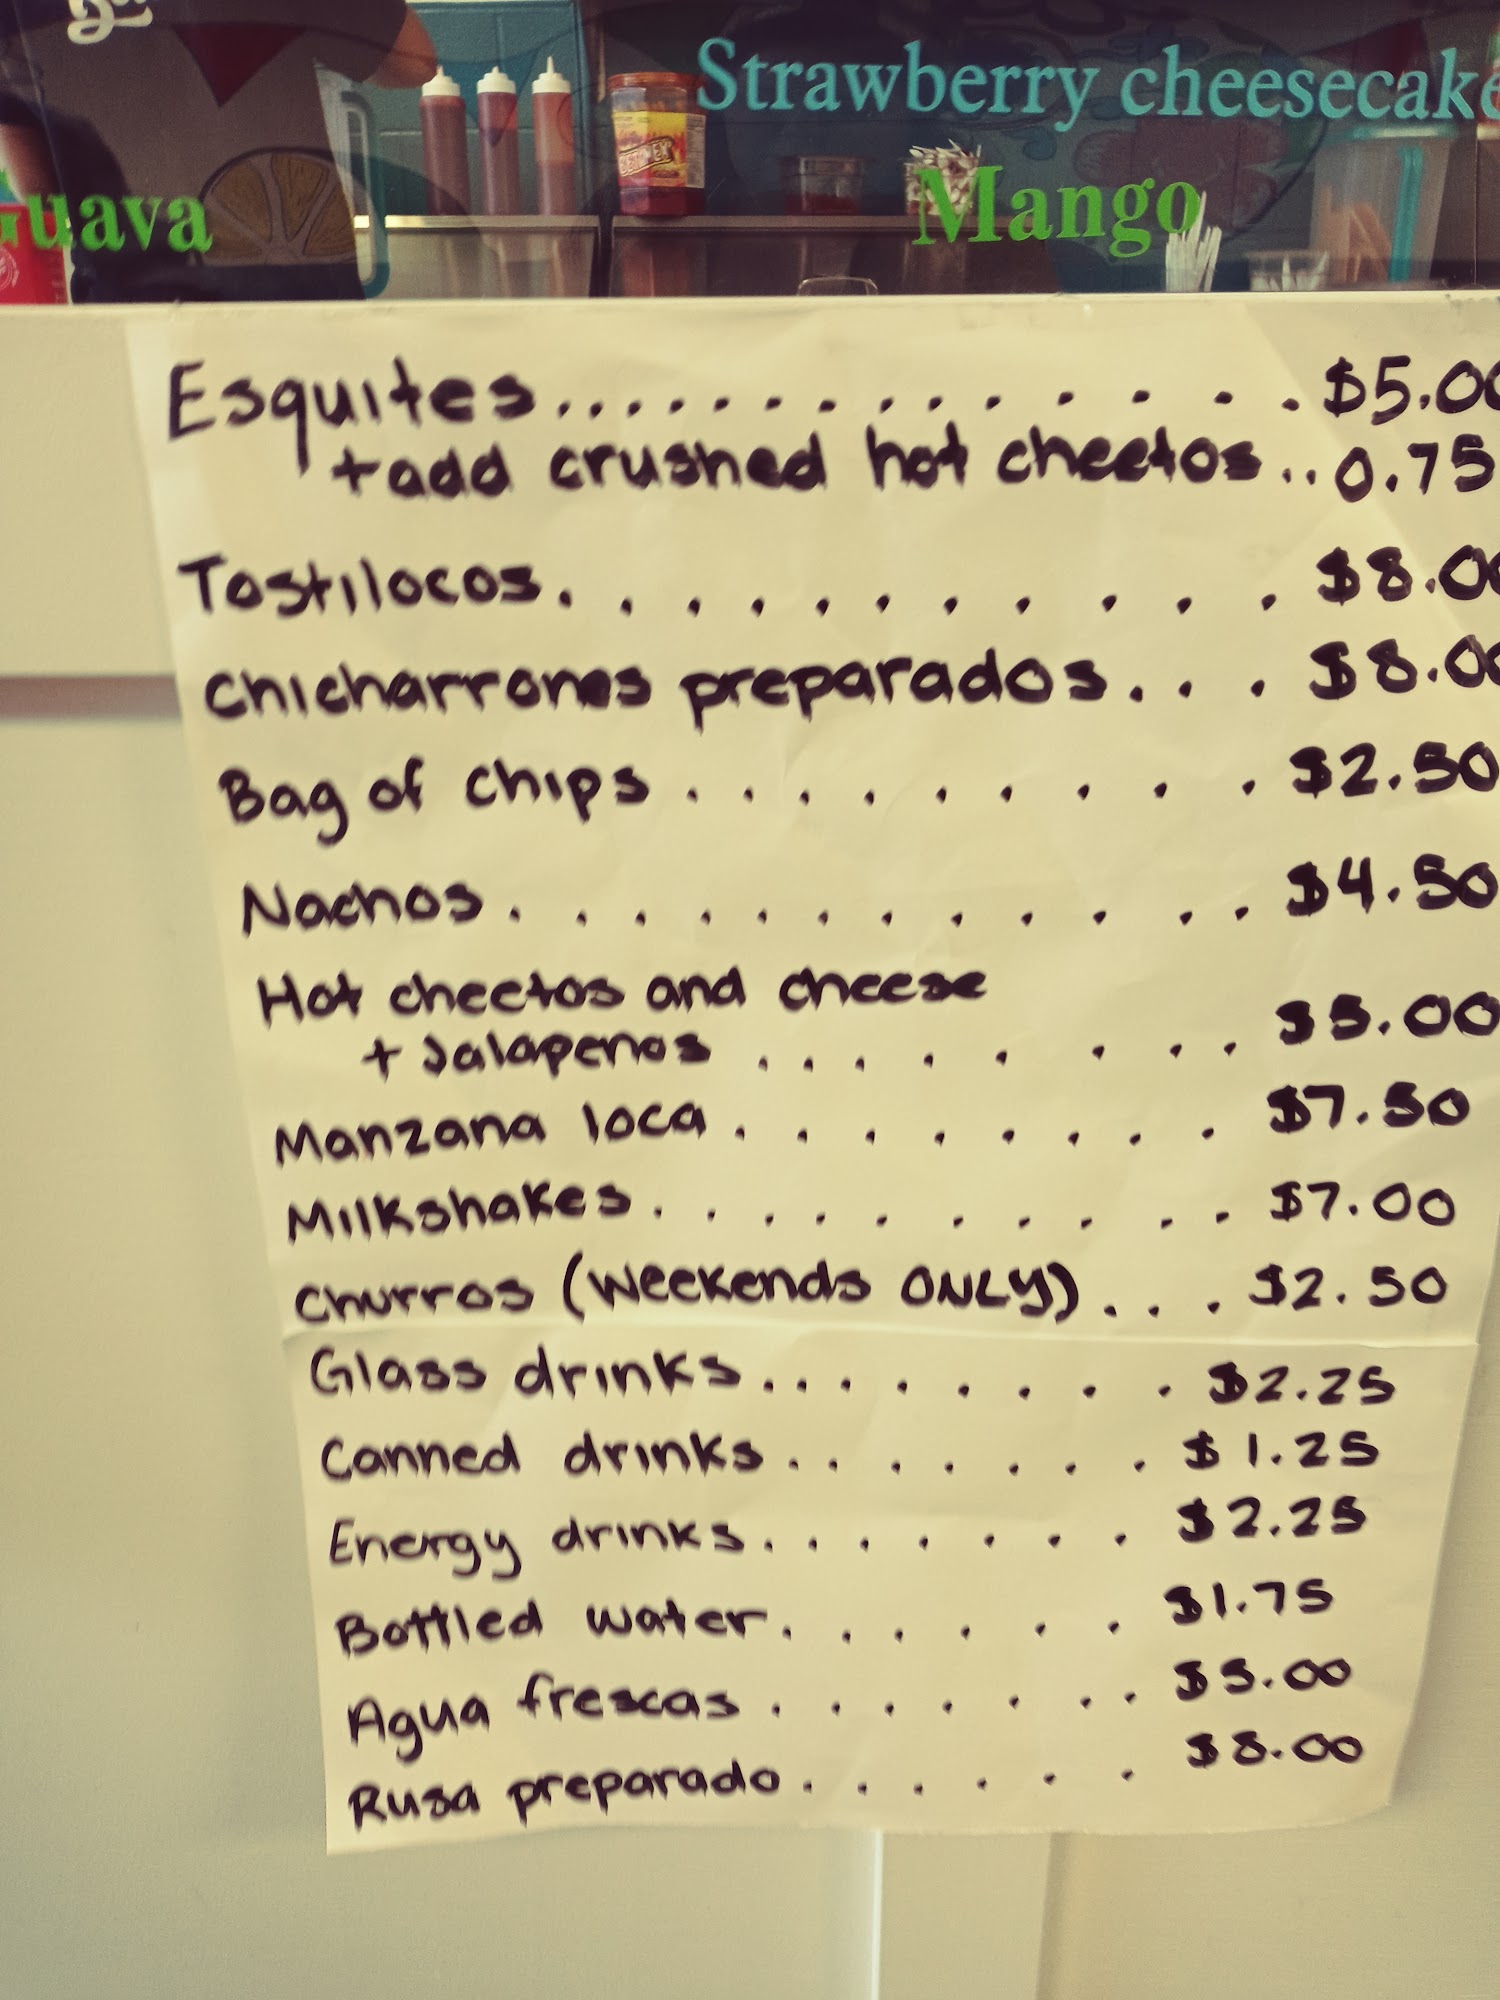 Strawberry cheesecake
Guava
Mango
Esquites.............. $5.00
+add crushed hot cheetos.. 0.75
Tostilocos............ $8.00
Chicharrones preparados... $8.00
Bag of chips......... $2.50
Nachos............ $4.50
Hot cheetos and cheese
+ Jalapenos........ $5.00
Manzana loca........ $7.50
Milkshakes.......... $7.00
Churros (weekends ONLY)... $2.50
Glass drinks........ $2.25
Canned drinks....... $1.25
Energy drinks....... $2.25
Bottled water...... $1.75
Agua frescas....... $5.00
Rusa preparado...... $8.00